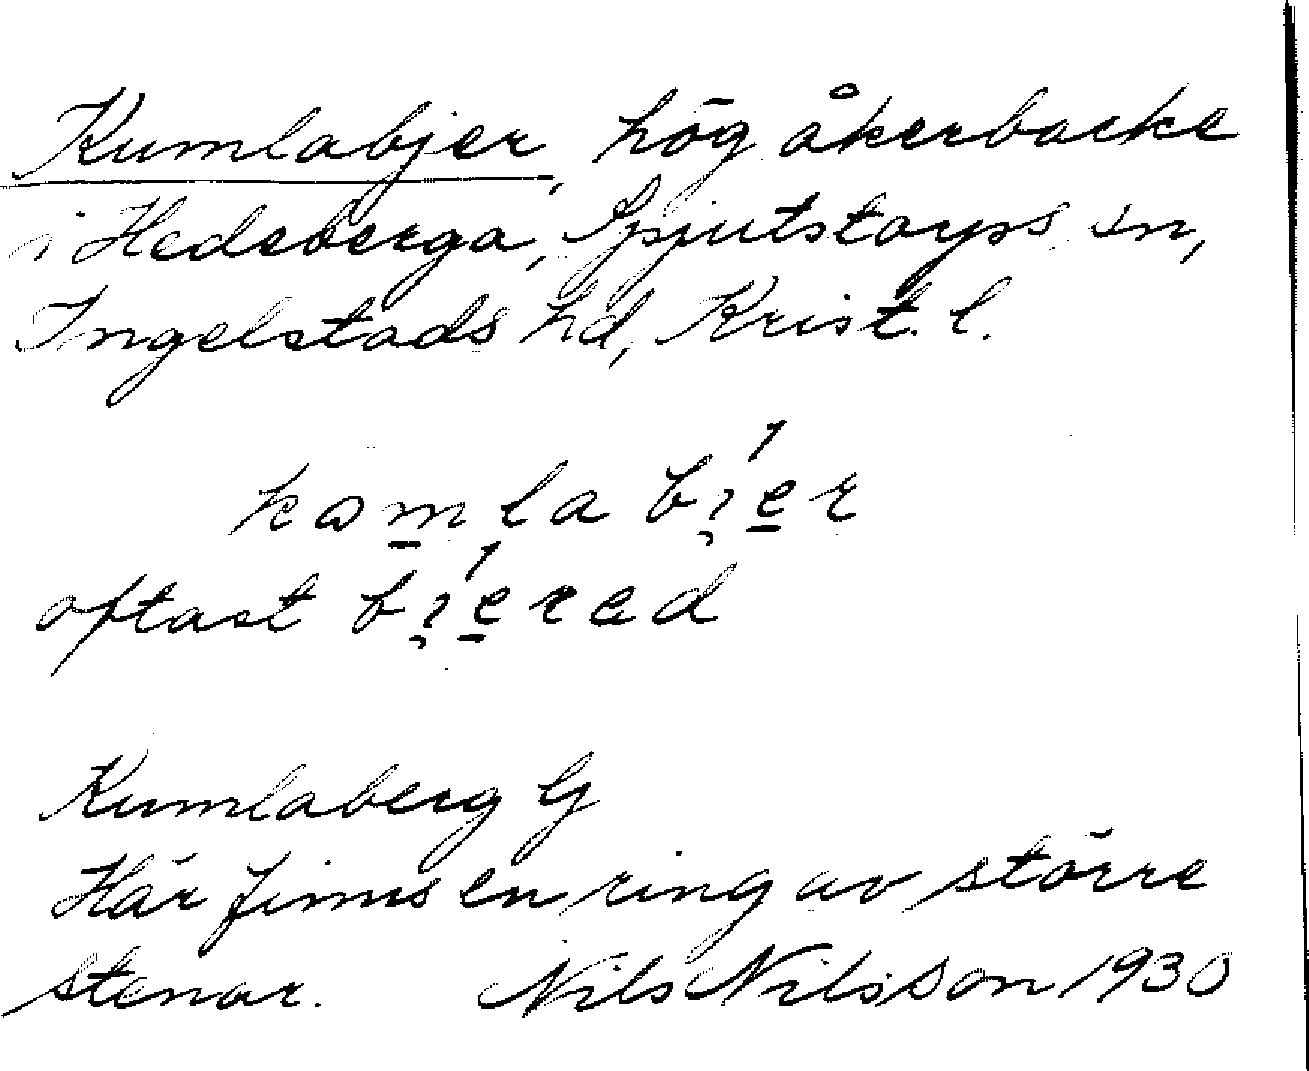 Kumlabjer, hög åkerbacke
i Hedeberga, Spjutstorps sn,
Ingelstads hd, Krist. l.
komla bier
oftast biered
Kumlaberg G
Här finns en ring av större
stenar. Nils Nilsson 1930